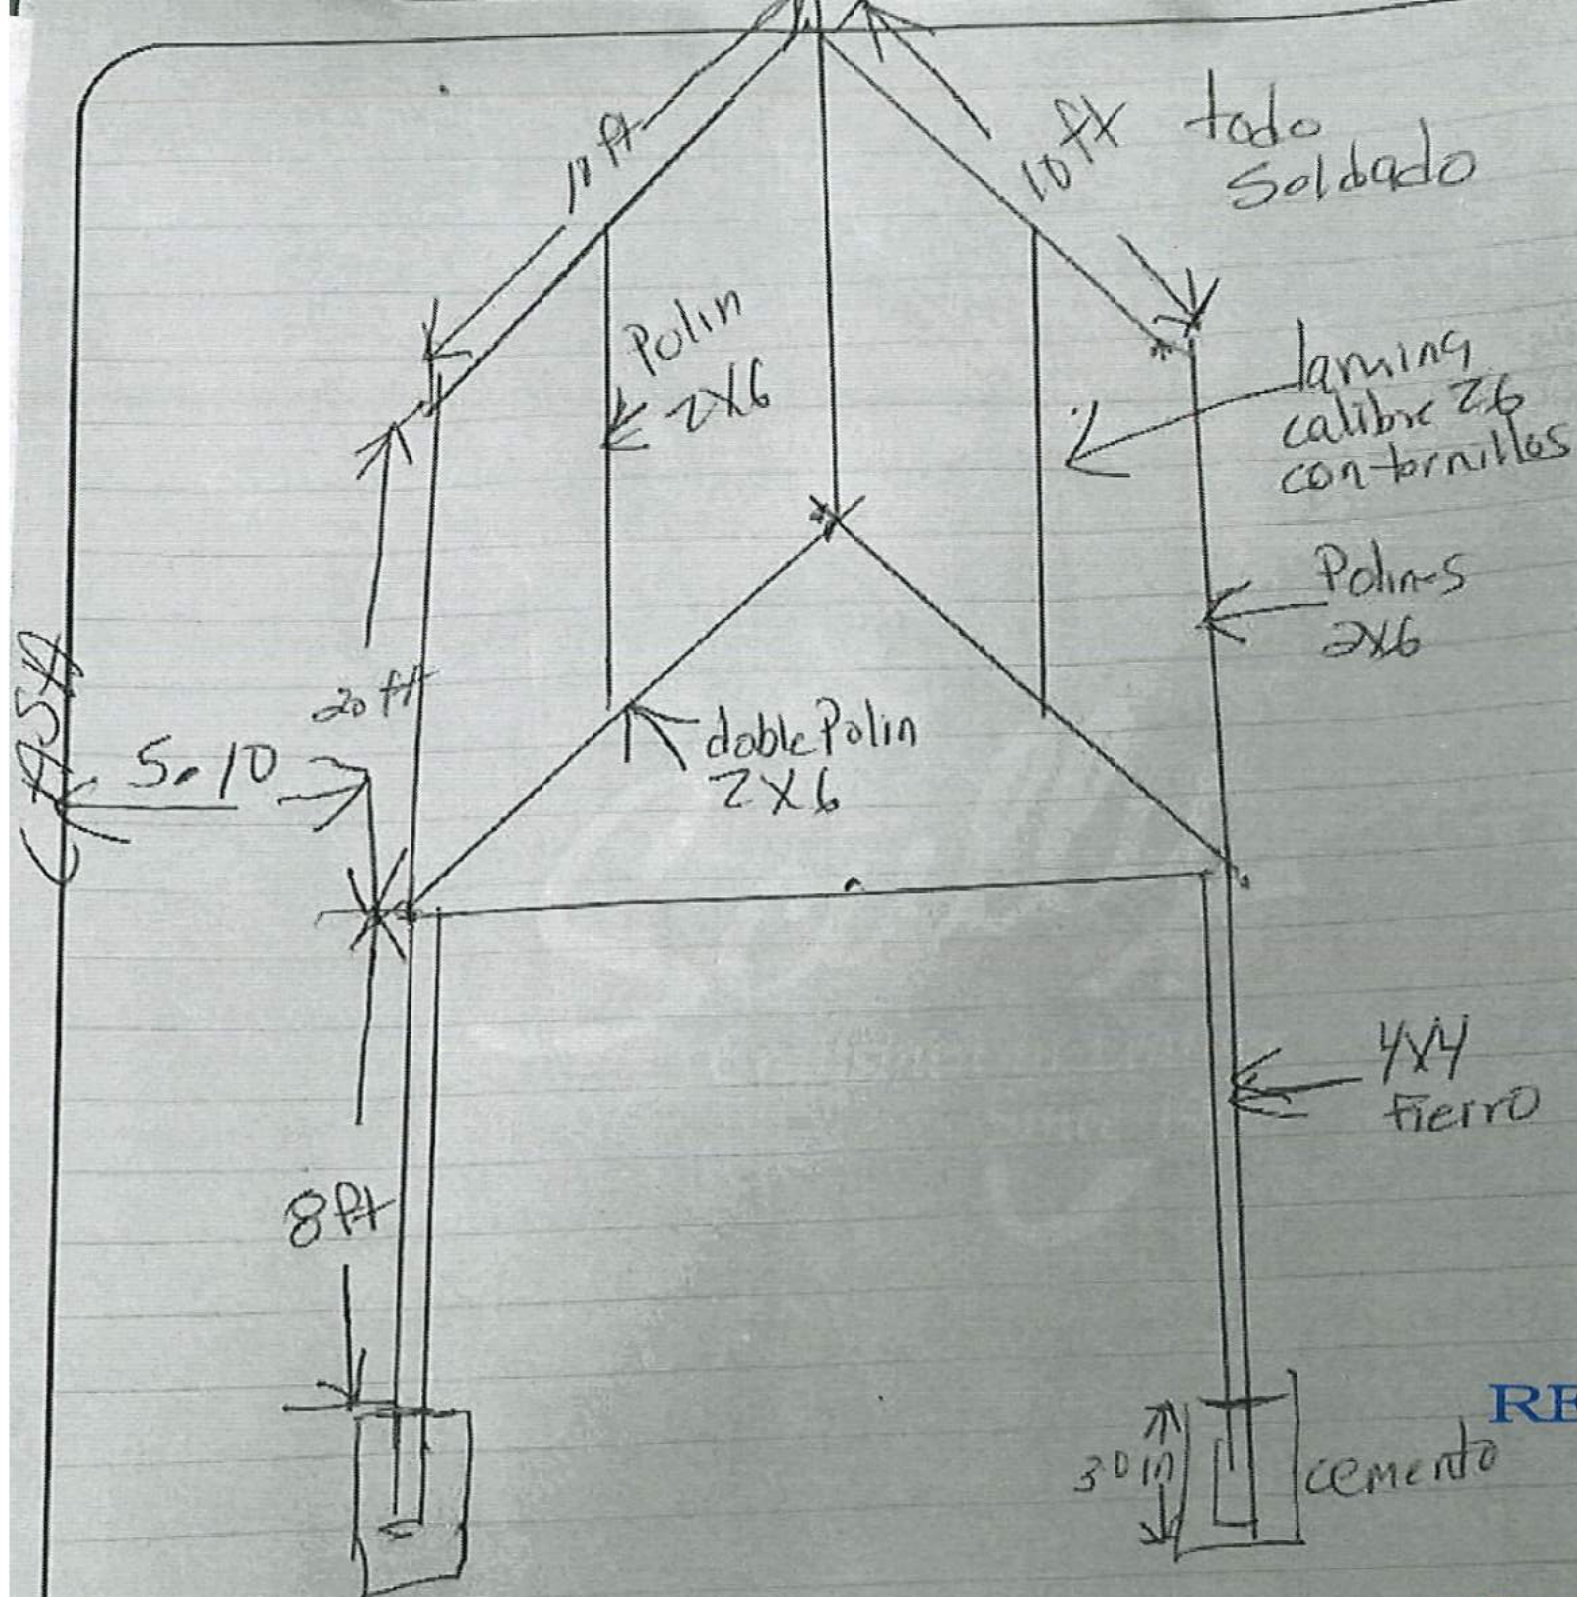 10 ft
10 ft
todo
Soldado
Polin
2x6
lamina
calibre 26
con tornillos
Polin-s
2x6
CASA
20 ft
5.10
doble Polin
2x6
4x4
Fierro
8ft
30 in
cemento
RE